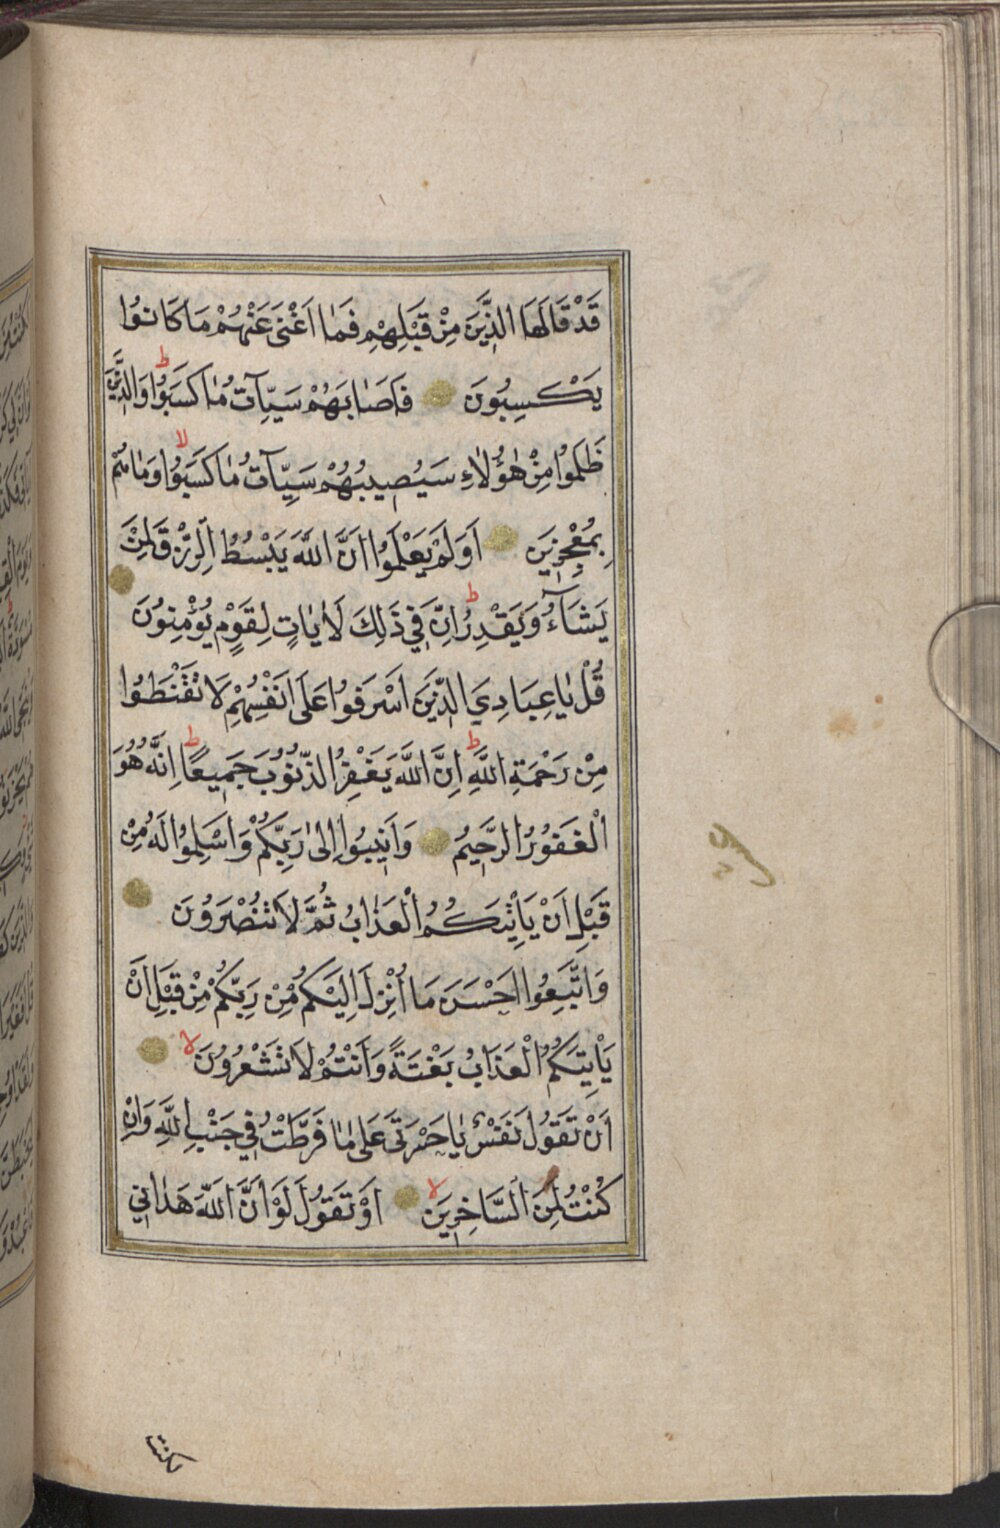 قَدْ قَالَهَا الَّذِينَ مِنْ قَبْلِهِمْ فَمَا اَغْنٰى عَنْهُمْ مَا كَانُوا
يَكْسِبُونَ فَاَصَابَهُمْ سَيِّاٰتُ مَا كَسَبُوا ط وَالَّذِينَ
ظَلَمُوا مِنْ هٰؤُلَاءِ سَيُصِيبُهُمْ سَيِّاٰتُ مَا كَسَبُوا لا وَمَا هُمْ
بِمُعْجِزِينَ اَوَلَمْ يَعْلَمُوا اَنَّ اللّٰهَ يَبْسُطُ الرِّزْقَ لِمَنْ
يَشَآءُ وَيَقْدِرُ ط اِنَّ فِي ذٰلِكَ لَاٰيَاتٍ لِقَوْمٍ يُؤْمِنُونَ
قُلْ يَا عِبَادِيَ الَّذِينَ اَسْرَفُوا عَلٰى اَنْفُسِهِمْ لَا تَقْنَطُوا
مِنْ رَحْمَةِ اللّٰهِ ط اِنَّ اللّٰهَ يَغْفِرُ الذُّنُوبَ جَمِيعًا ط اِنَّهُ هُوَ
الْغَفُورُ الرَّحِيمُ وَاَنِيبُوا اِلٰى رَبِّكُمْ وَاَسْلِمُوا لَهُ مِنْ
قَبْلِ اَنْ يَأْتِيَكُمُ الْعَذَابُ ثُمَّ لَا تُنْصَرُونَ
وَاتَّبِعُوا اَحْسَنَ مَا اُنْزِلَ اِلَيْكُمْ مِنْ رَبِّكُمْ مِنْ قَبْلِ اَنْ
يَأْتِيَكُمُ الْعَذَابُ بَغْتَةً وَاَنْتُمْ لَا تَشْعُرُونَ لا
اَنْ تَقُولَ نَفْسٌ يَا حَسْرَتٰى عَلٰى مَا فَرَّطْتُ فِي جَنْبِ اللّٰهِ وَاِنْ
كُنْتُ لَمِنَ السَّاخِرِينَ لا اَوْ تَقُولَ لَوْ اَنَّ اللّٰهَ هَدَانِي
لكنت